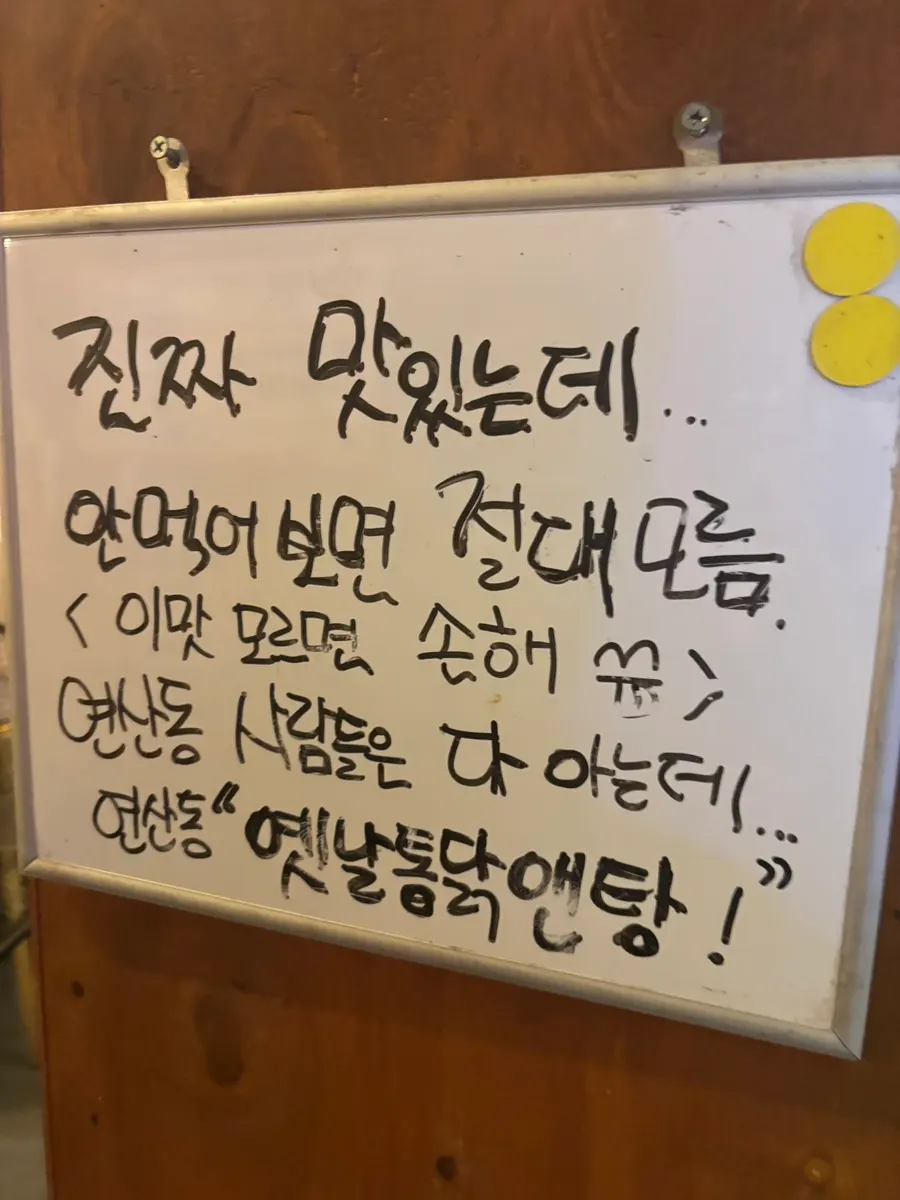 진짜 맛있는데...
안먹어보면 절대모름.
< 이맛 모르면 손해 ㅠㅠ >
연산동 사람들은 다 아는데...
연산동 "옛날통닭앤탕!"